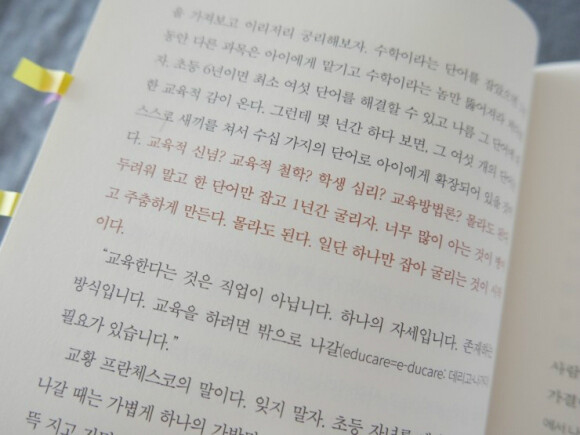 을 가져보고 이리저리 궁리해보자. 수학이라는 단어를 잡았으면
동안 다른 과목은 아이에게 맡기고 수학이라는 놈만 뚫어져라
자. 초등 6년이면 최소 여섯 단어를 해결할 수 있고 나름 그 단어에
한 교육적 감이 온다. 그런데 몇 년간 하다 보면, 그 여섯 개의
스스로 새끼를 쳐서 수십 가지의 단어로 아이에게 확장되어 있을
다. 교육적 신념? 교육적 철학? 학생 심리? 교육방법론? 몰라도 된다
두려워 말고 한 단어만 잡고 1년간 굴리자. 너무 많이 아는 것이
고 주춤하게 만든다. 몰라도 된다. 일단 하나만 잡아 굴리는 것이
이다.
“교육한다는 것은 직업이 아닙니다. 하나의 자세입니다. 존재하는
방식입니다. 교육을 하려면 밖으로 나갈(educare=e-ducare: 데리고 나가다)
필요가 있습니다.”
교황 프란체스코의 말이다. 잊지 말자. 초등 자녀를
나갈 때는 가볍게 하나의 가방만
뜩 지고
사람
가결
에서 나